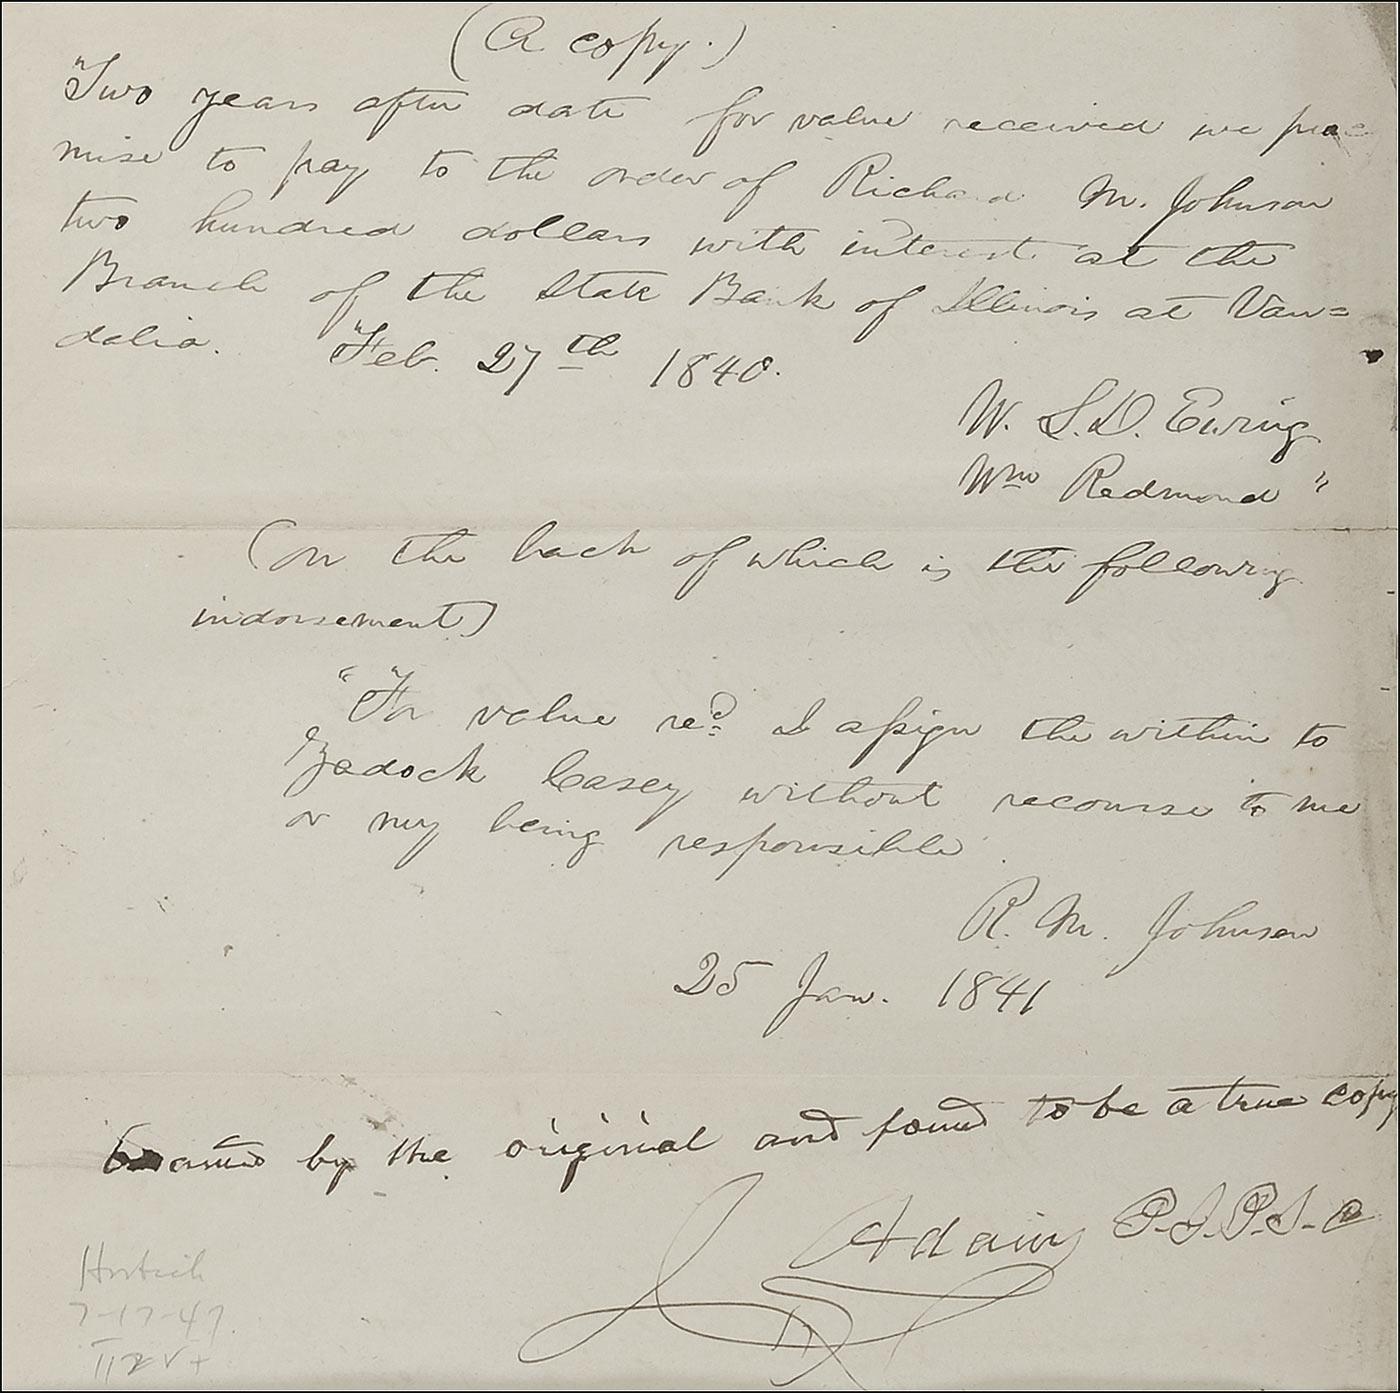 (A copy.)
"Two years after date for value received we pro
mise to pay to the order of Richard M. Johnson
two hundred dollars with interest at the
Branch of the State Bank of Illinois at Van=
dalia. Feb. 27th 1840.
W. L. D. Ewing
Wm Redmond"
(on the back of which is the following
indorsement)
"For value recd. I assign the within to
Zadock Casey without recourse to me
or my being responsible
R. M. Johnson
25 Jan. 1841
by the original and found to be a true copy
J Adams
7-17-47